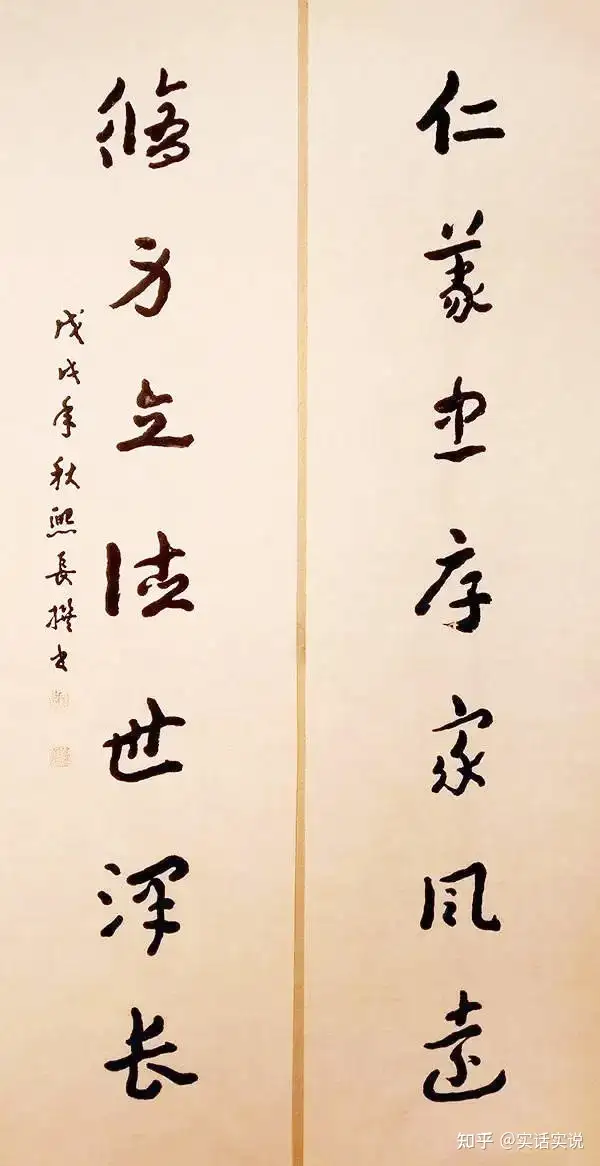 仁義忠厚家風遠
方立德世澤长
戊戌年秋熙長撰书
知乎 @实话实说